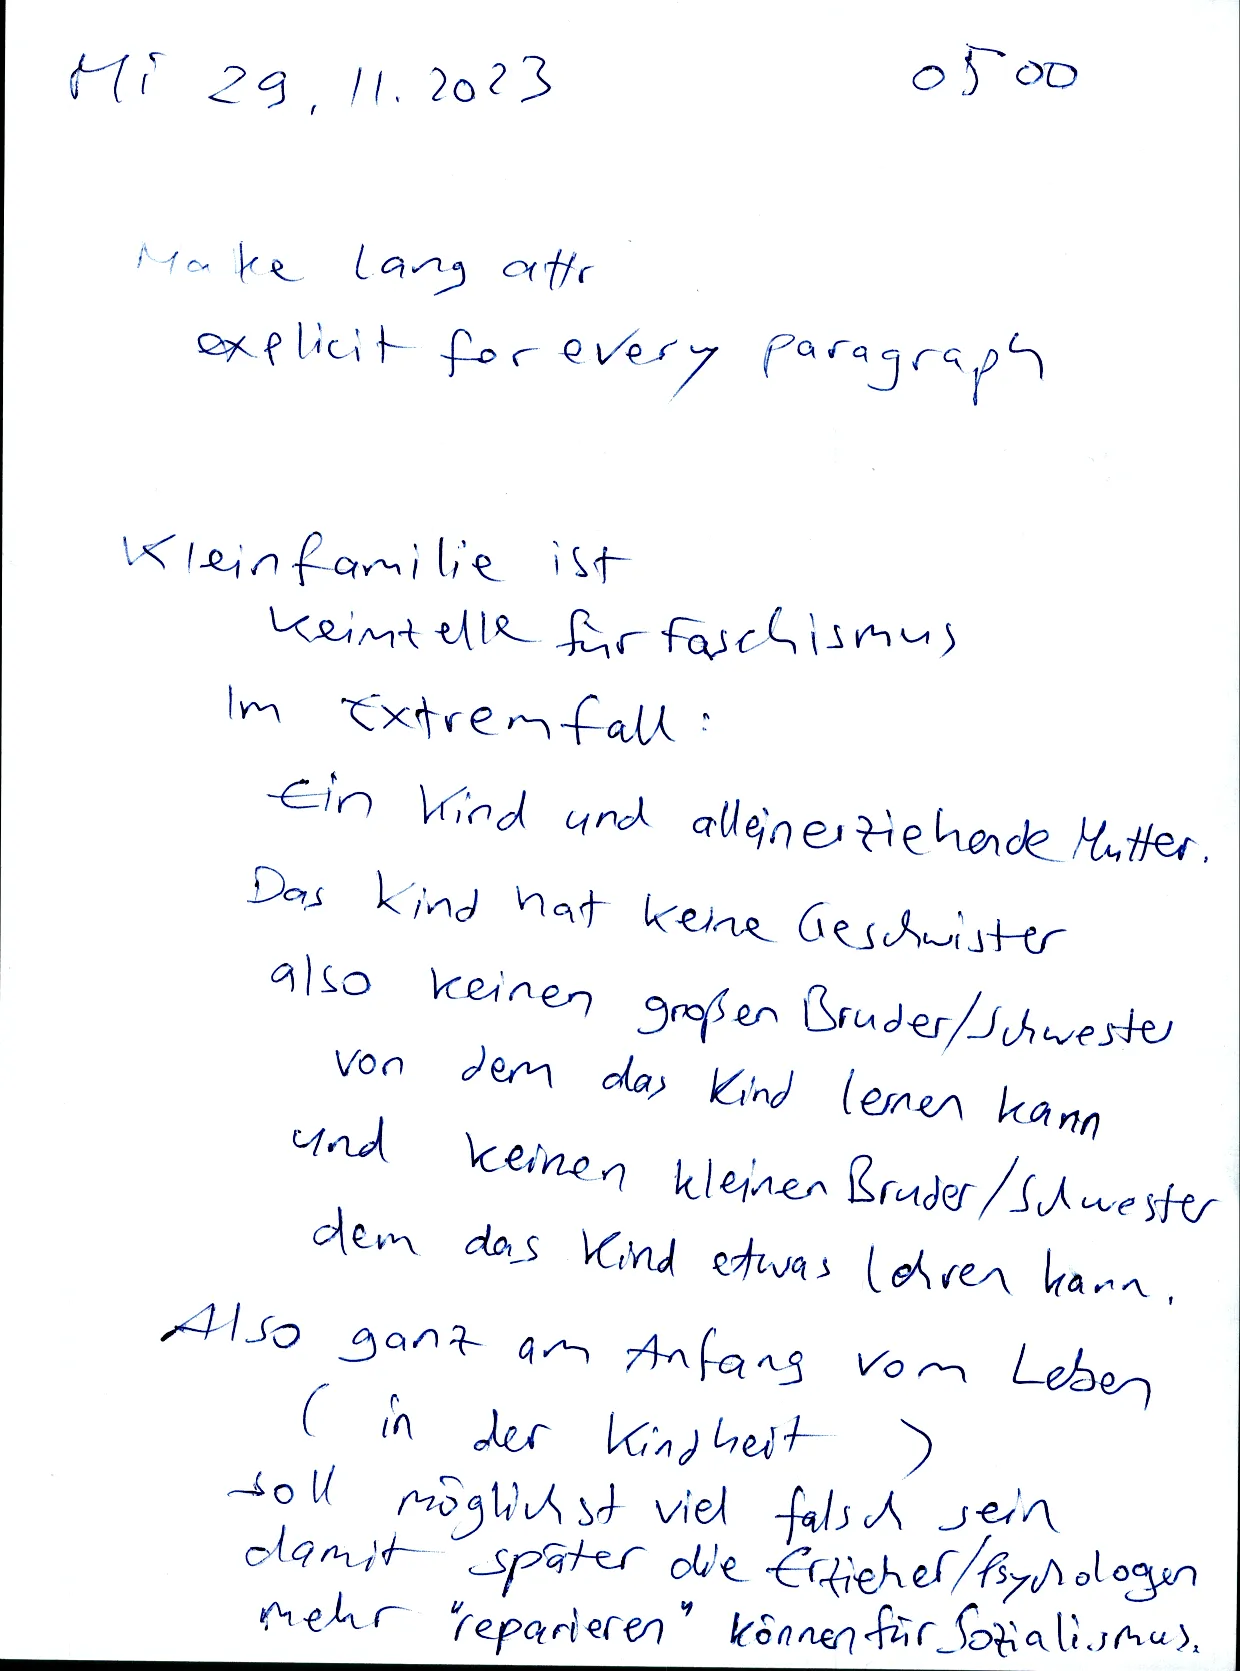 Mi 29.11.2023 0500
Make lang attr
explicit for every paragraph
Kleinfamilie ist
keimtelle für Faschismus
Im Extremfall:
Ein Kind und alleinerziehende Mutter.
Das Kind hat keine Geschwister
also keinen großen Bruder/Schwester
von dem das Kind lernen kann
und keinen kleinen Bruder/Schwester
dem das Kind etwas lehren kann.
Also ganz am Anfang vom Leben
( in der Kindheit )
soll möglichst viel falsch sein
damit später die Erzieher/Psychologen
mehr "reparieren" können für Sozialismus.